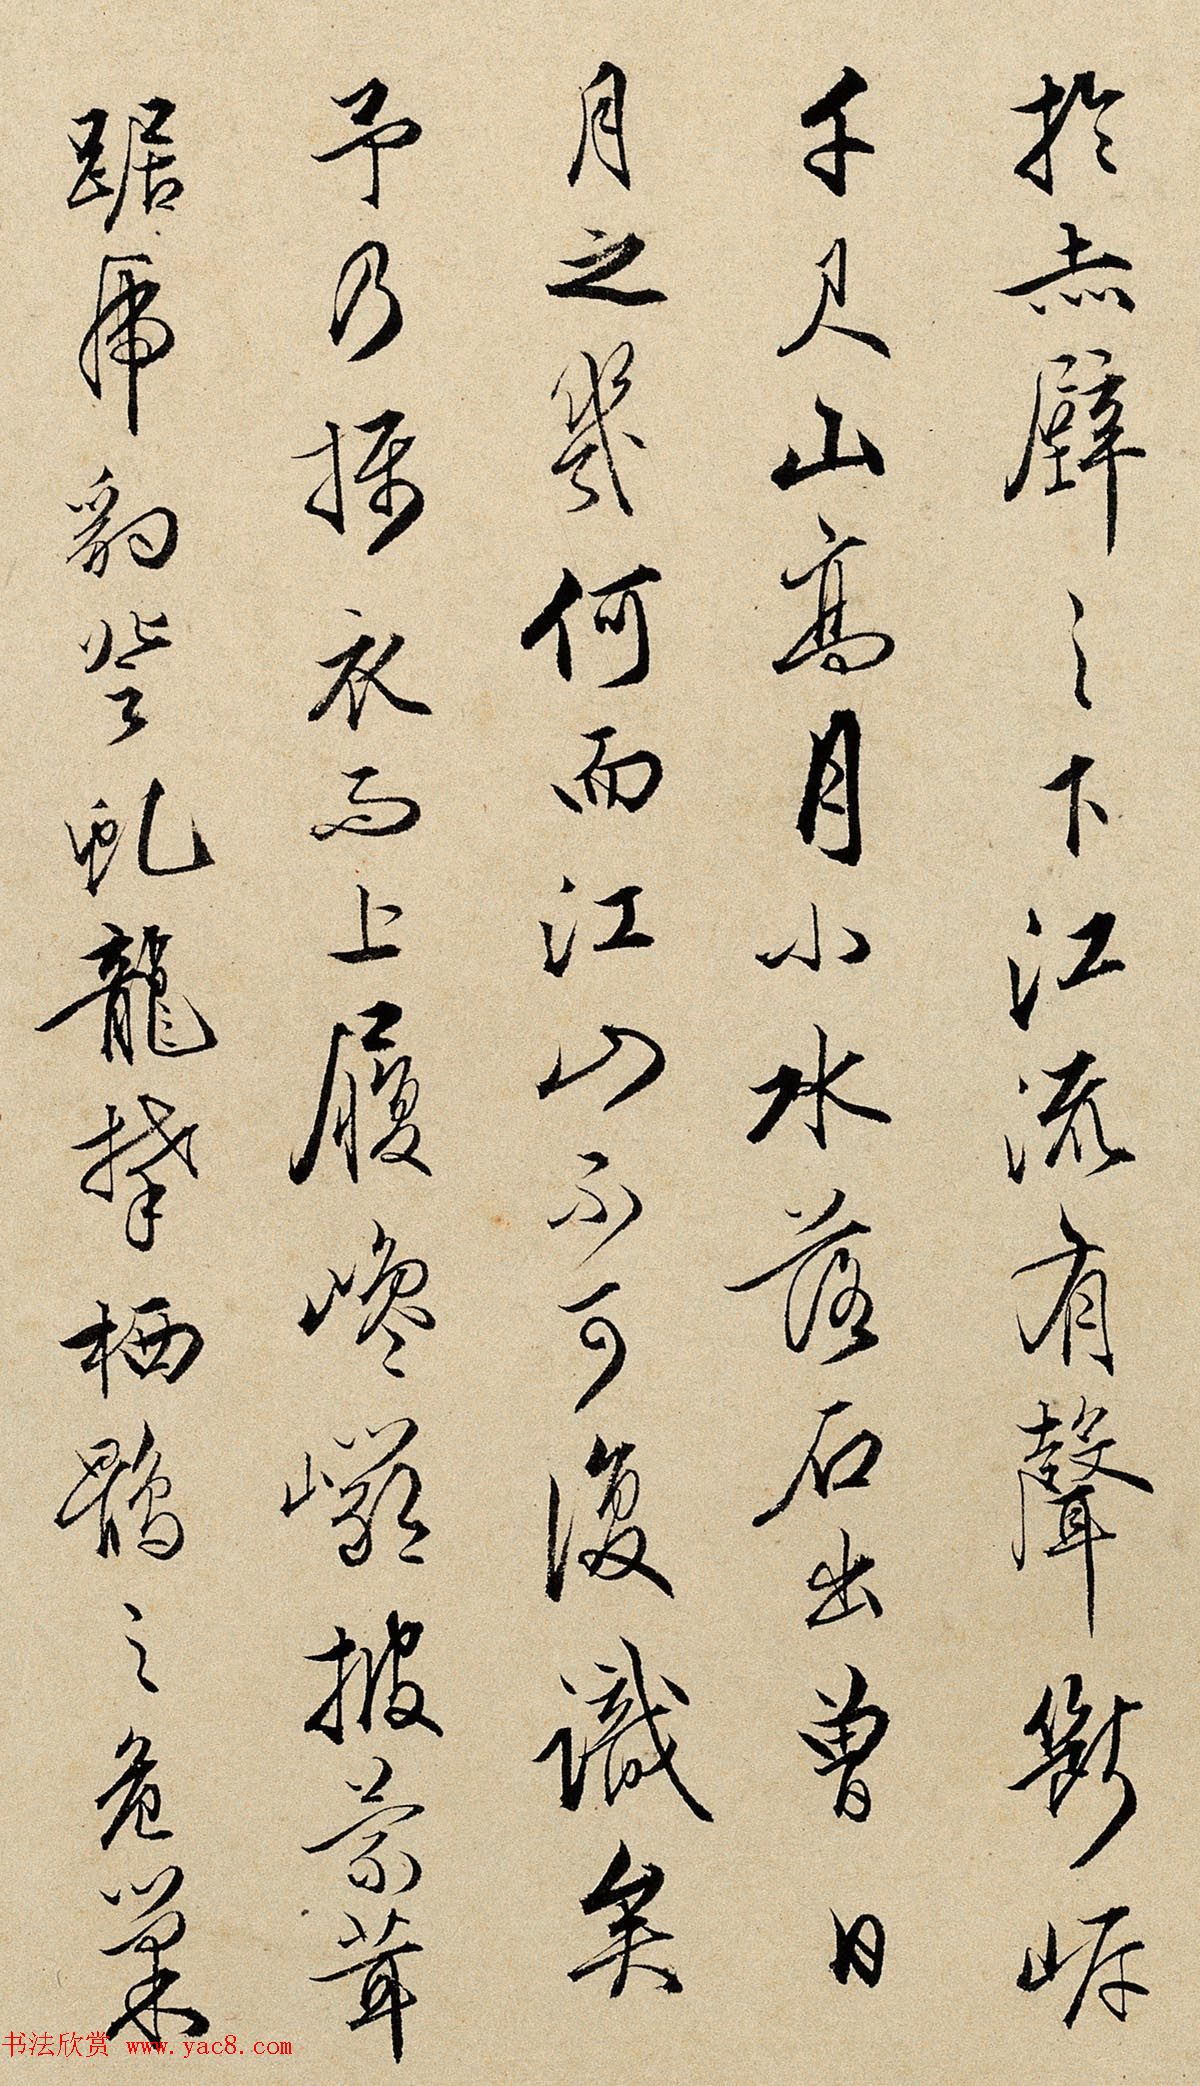 於赤壁之下江流有聲斷岸
千尺山高月小水落石出曾日
月之幾何而江山不可復識矣
予乃攝衣而上履巉巖披蒙茸
踞虎豹登虬龍攀栖鶻之危巢
书法欣赏 www.yac8.com